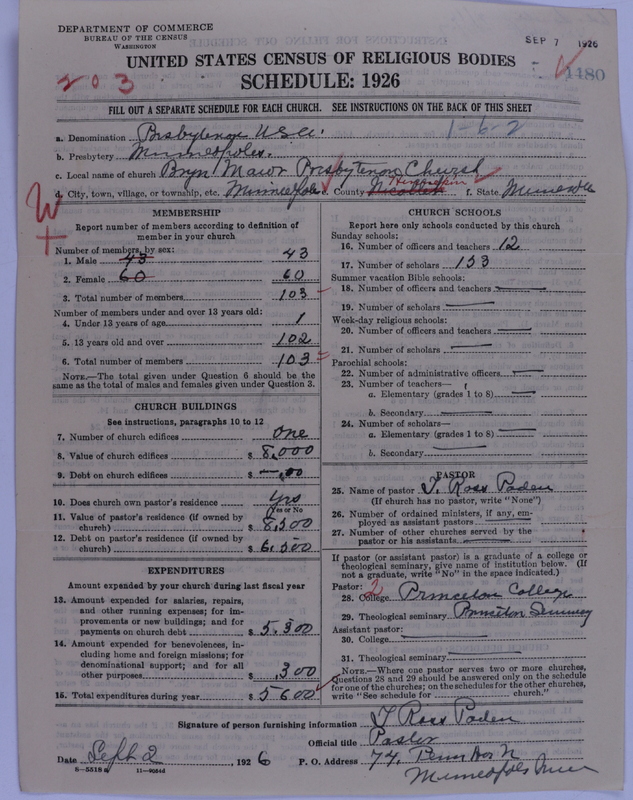 DEPARTMENT OF COMMERCE
BUREAU OF THE CENSUS
WASHINGTON
SEP 7 1926
UNITED STATES CENSUS OF RELIGIOUS BODIES
SCHEDULE: 1926
203
1480
FILL OUT A SEPARATE SCHEDULE FOR EACH CHURCH. SEE INSTRUCTIONS ON THE BACK OF THIS SHEET
a. Denomination Presbyterian U.S.A.
1-6-2
b. Presbytery Minneapolis.
c. Local name of church Bryn Mawr Presbyterian Church
d. City, town, village, or township, etc. Minneapolis e. County Hennepin f. State Minnesota
W
MEMBERSHIP
Report number of members according to definition of
member in your church
Number of members, by sex:
1. Male 43 43
2. Female 60 60
3. Total number of members 103
Number of members under and over 13 years old:
4. Under 13 years of age 1
5. 13 years old and over 102
6. Total number of members 103
NOTE.—The total given under Question 6 should be the
same as the total of males and females given under Question 3.
CHURCH BUILDINGS
See instructions, paragraphs 10 to 12
7. Number of church edifices One
8. Value of church edifices $ 8,000
9. Debt on church edifices $ —.00
10. Does church own pastor's residence Yes
Yes or No
11. Value of pastor's residence (if owned by
church) $ 8,500
12. Debt on pastor's residence (if owned by
church) $ 6,500
EXPENDITURES
Amount expended by your church during last fiscal year
13. Amount expended for salaries, repairs,
and other running expenses; for im-
provements or new buildings; and for
payments on church debt $ 5,300
14. Amount expended for benevolences, in-
cluding home and foreign missions; for
denominational support; and for all
other purposes $ 300
15. Total expenditures during year $ 5600
CHURCH SCHOOLS
Report here only schools conducted by this church
Sunday schools:
16. Number of officers and teachers 12
17. Number of scholars 153
Summer vacation Bible schools:
18. Number of officers and teachers
19. Number of scholars
Week-day religious schools:
20. Number of officers and teachers
21. Number of scholars
Parochial schools:
22. Number of administrative officers
23. Number of teachers—
a. Elementary (grades 1 to 8)
b. Secondary
24. Number of scholars—
a. Elementary (grades 1 to 8)
b. Secondary
PASTOR
25. Name of pastor T. Ross Paden
(If church has no pastor, write "None")
26. Number of ordained ministers, if any, em-
ployed as assistant pastors
27. Number of other churches served by the
pastor or his assistants
If pastor (or assistant pastor) is a graduate of a college or
theological seminary, give name of institution below. (If
not a graduate, write "No" in the space indicated.)
Pastor: 2
28. College Princeton College
29. Theological seminary Princeton Seminary
Assistant pastor:
30. College
31. Theological seminary
NOTE.—Where one pastor serves two or more churches,
questions 28 and 29 should be answered only on the schedule
for one of the churches; on the schedules for the other churches,
write "See schedule for church."
Signature of person furnishing information T Ross Paden
Official title Pastor
Date Sept 2, 1926 P. O. Address 74, Penn Ave N
Minneapolis Minn
11—9024d